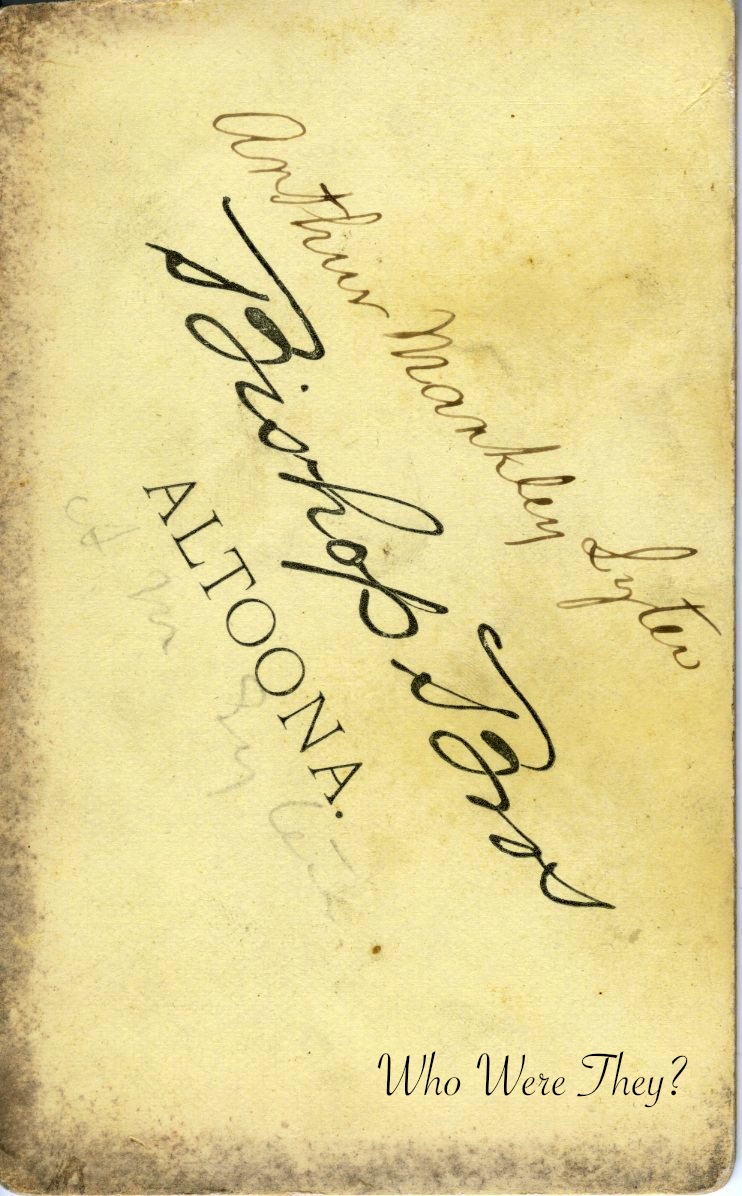 Arthur Markley Lyter
Bishop Bros
ALTOONA.
Who Were They?